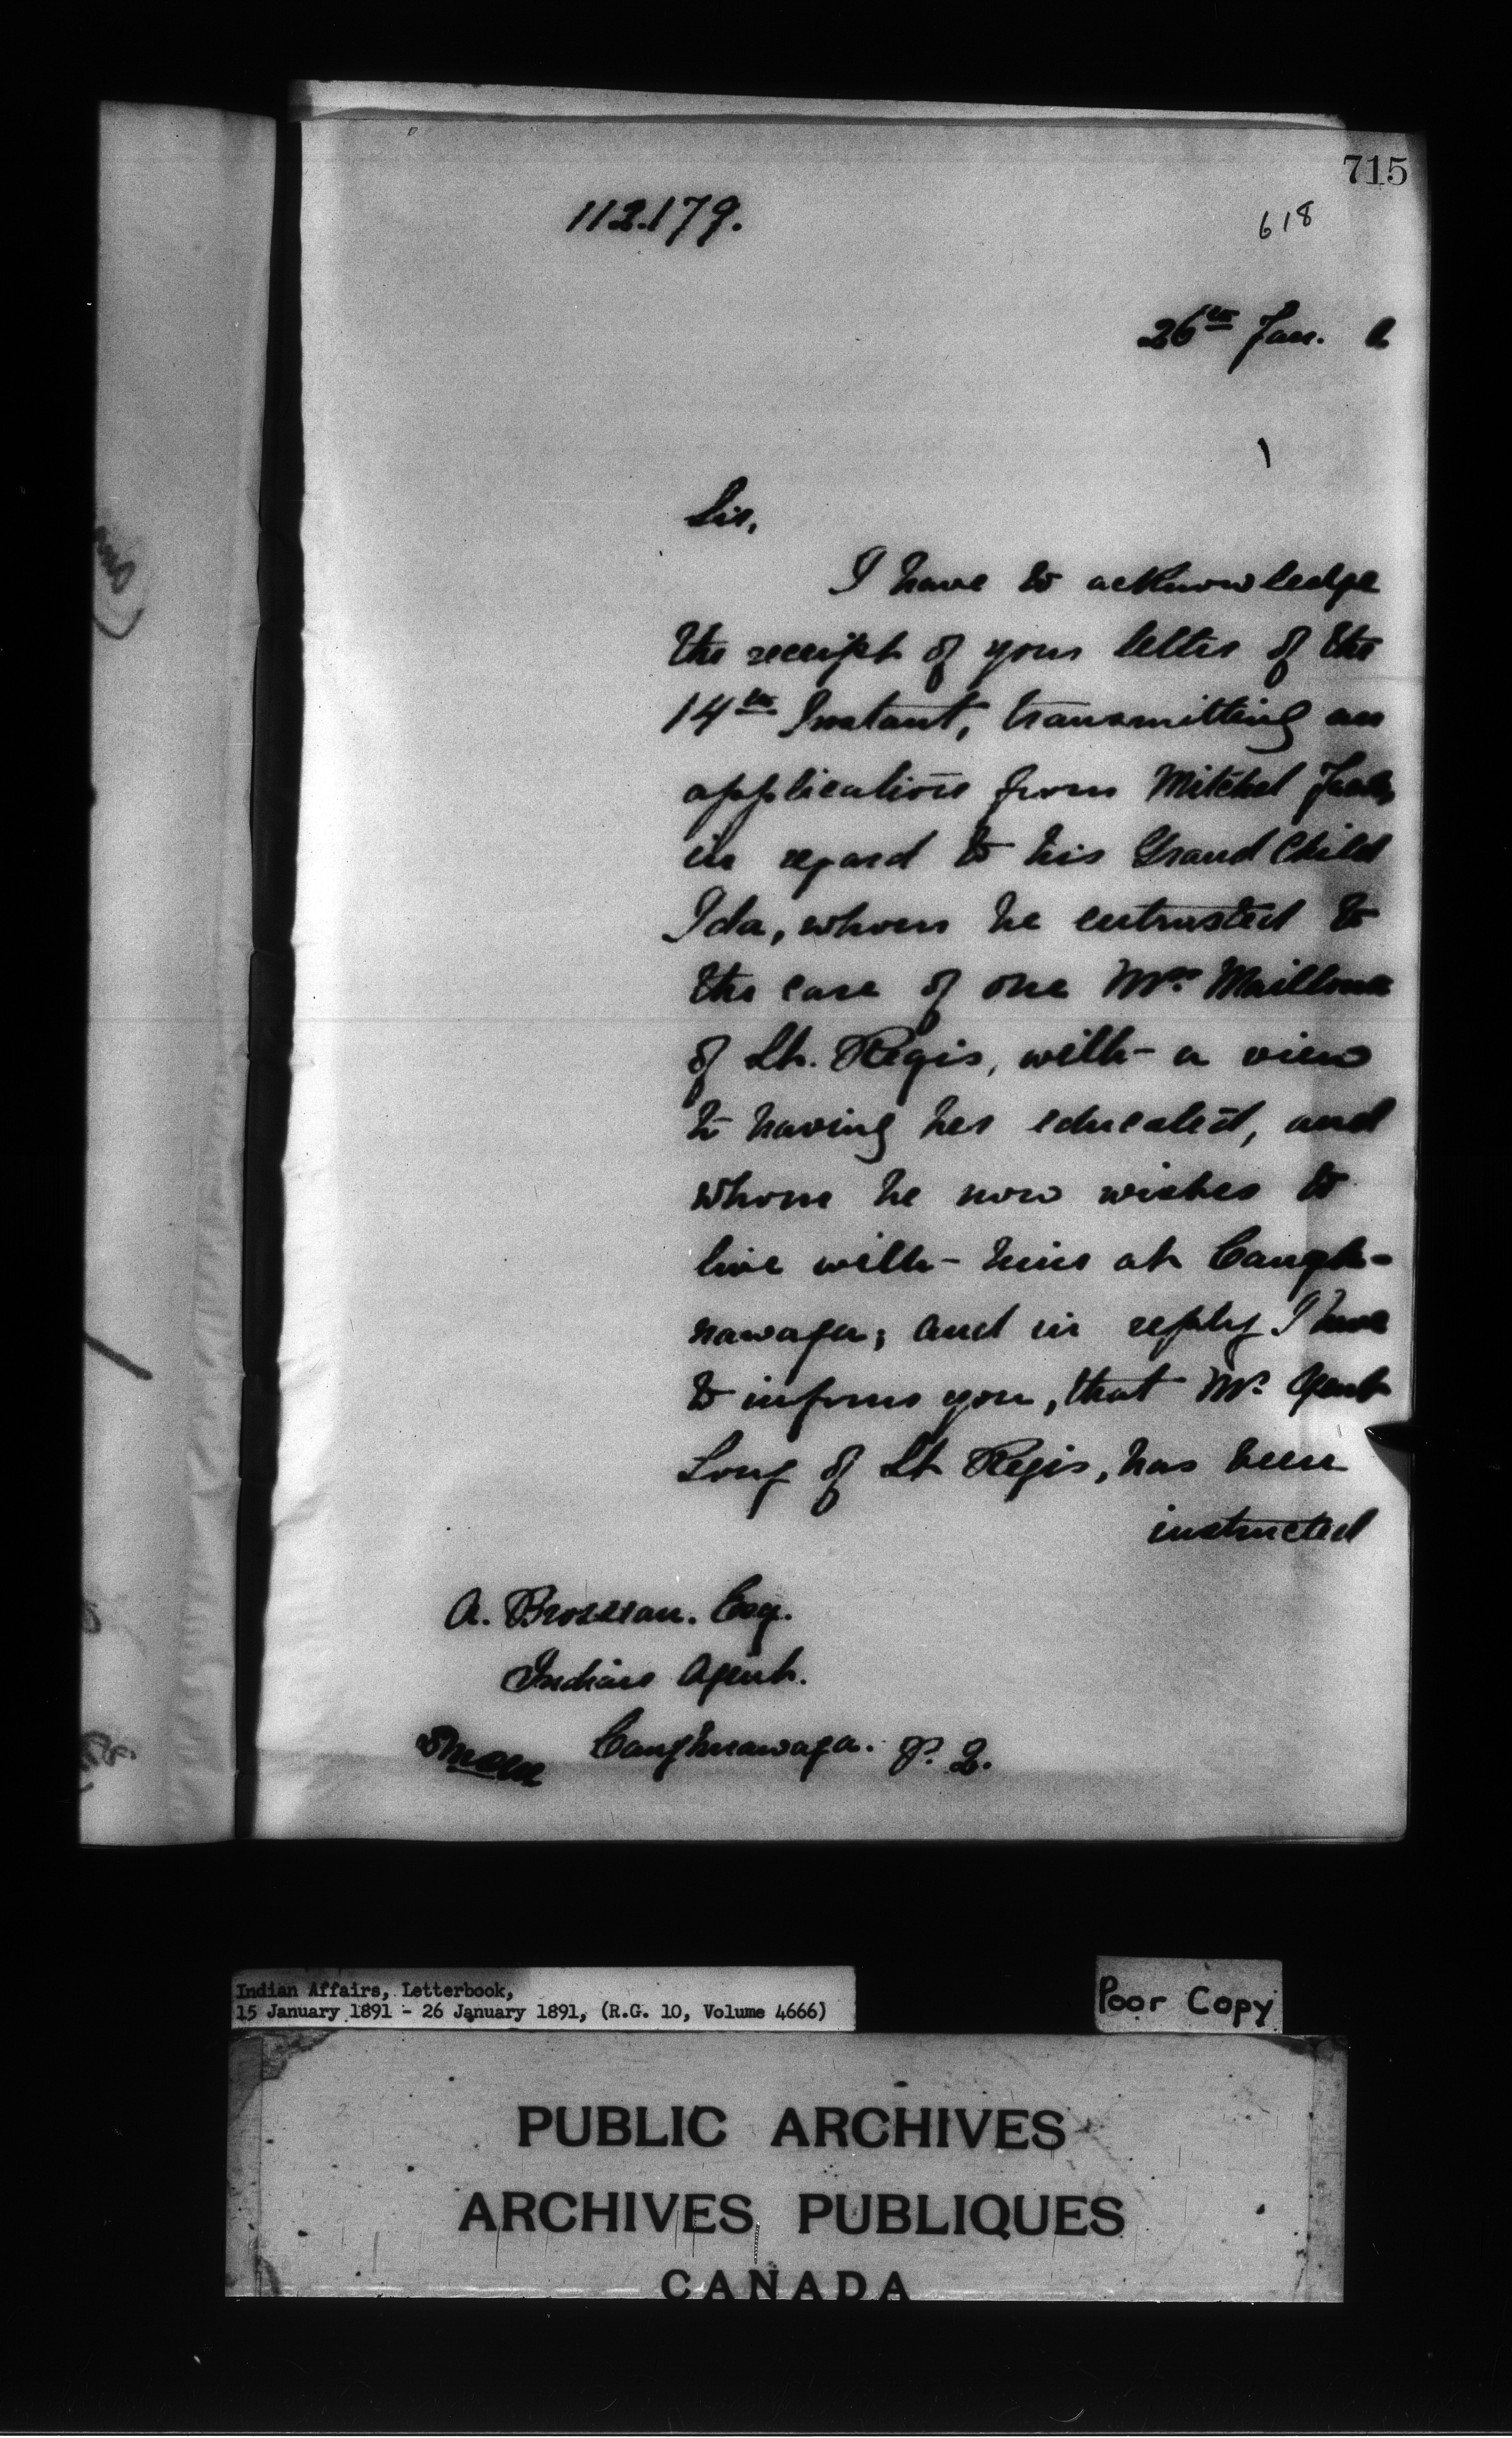 715
112.179.
618
26th Jan.
Sir,
I have to acknowledge
the receipt of your letter of the
14th Instant, transmitting an
application from Mitchel
in regard to his Grand Child
Ida, whom he entrusted to
the care of one Mrs. Mailloux
of St. Regis, with a view
to having her educated, and
whom he now wishes to
live with him at Caugh-
nawaga; and in reply I have
to inform you, that Mr. Agent
Long of St Regis, has been
instructed
A. Brosseau. Esq.
Indian Agent.
Caughnawaga. P. Q.
Indian Affairs, Letterbook,
15 January 1891 - 26 January 1891, (R.G. 10, Volume 4666)
Poor Copy
PUBLIC ARCHIVES
ARCHIVES PUBLIQUES
CANADA